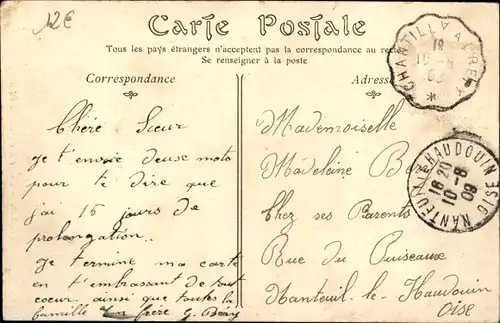 12€
Carte Postale
Tous les pays étrangers n'acceptent pas la correspondance au recto
Se renseigner à la poste
Correspondance
Adresse
CHANTILLY A CREPY
10 -8
NANTEUIL-LE-HAUDOUIN OISE
18 20
10 -8
09
Chére Sœur
je t'envoie deuse moto
pour te dire que
j'ai 15 jours de
prolongation.
Je termine ma carte
en t'embrassant de tout
coeur. ainsi que toute la
famille ton frére G.
Mademoiselle
Madeleine
Chez ses Parents
Rue du Puiseaux
Nanteuil. le. Haudouin
Oise